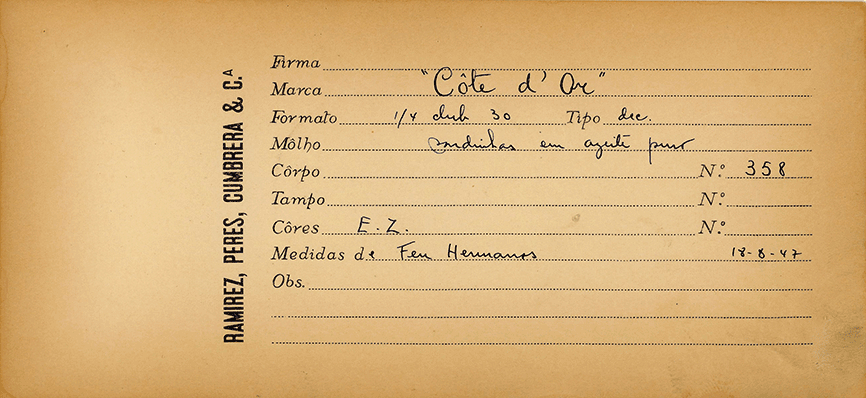 RAMIREZ, PERES, CUMBRERA & C.ᴬ
Firma
Marca "Côte d'Or"
Formato 1/4 club 30 Tipo dec.
Môlho sardinhas em azeite puro
Côrpo N.º 358
Tampo N.º
Côres E.Z. N.º
Medidas de Feu Hermanos 18-8-47
Obs.